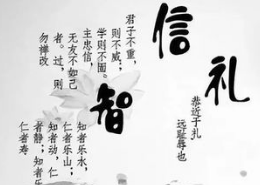 信
礼
恭近于礼
远耻辱也
智
君子不重，
则不威；
学则不固。
主忠信，
无友不如己
者。过，则
勿惮改
知者乐水，
仁者乐山；
知者动，仁
者静；知者乐
仁者寿